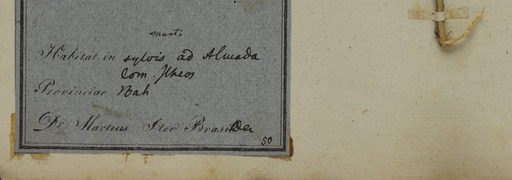 mart.
Habitat in sylvis ad Almada
Com. Ilheos
Provinciae Bah
Dr. Martius Iter Brasil
50